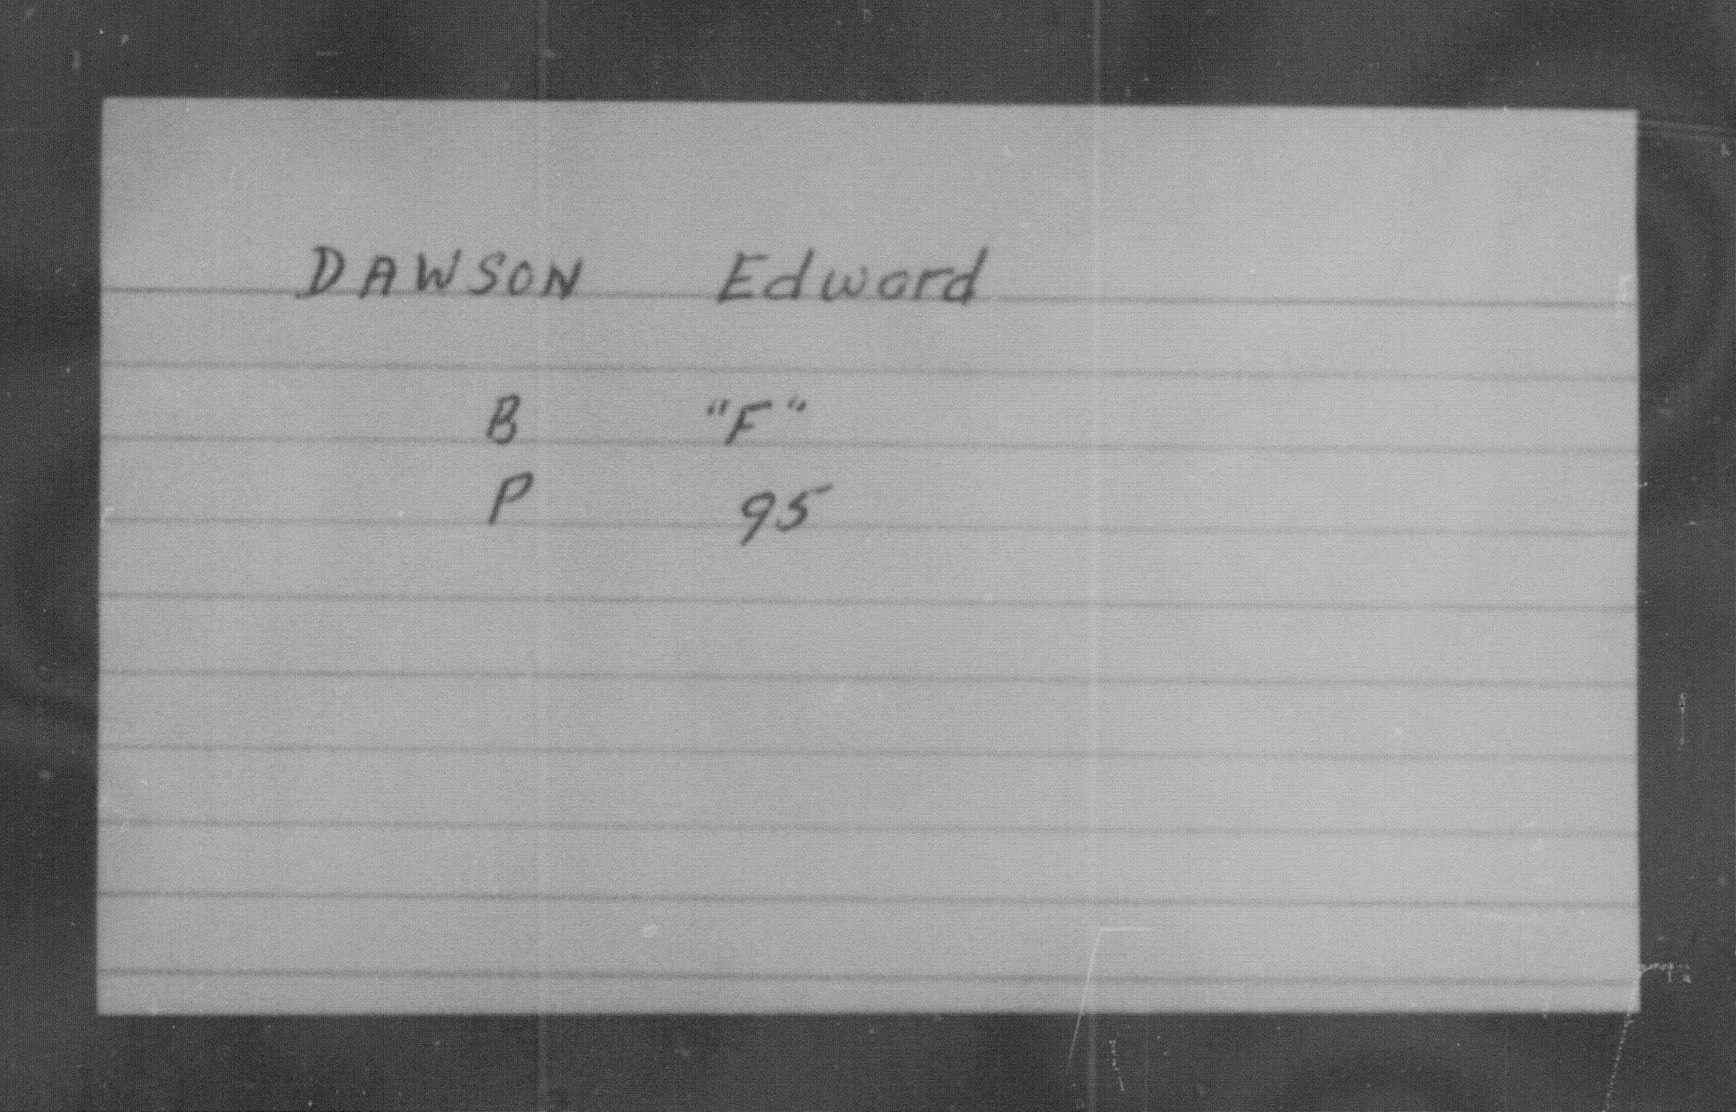 DAWSON Edward
B "F"
P 95